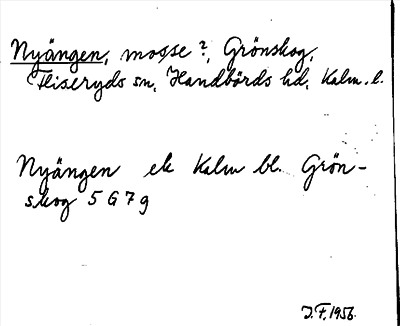 Nyängen, mosse?, Grönskog,
Fliseryds sn, Handbörds hd, Kalm. l.
Nyängen ek Kalm bl. Grön-
skog 5 G 7 g
J.F. 1956.